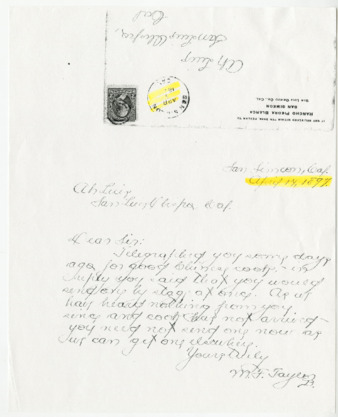 IF NOT DELIVERED WITHIN TEN DAYS RETURN TO
RANCHO PIEDRA BLANCA
SAN SIMEON
San Luis Obispo Co., Cal.
Ah Luis
San Luis Obispo,
Cal
San Simeon Cal
April 14, 1897
Ah Luis
San Luis Obispo Cal.
Dear Sir:
Telegraphed you some days
ago for good Chinese cook. In
reply you said that you would
send one by stage at once. As we
have heard nothing from you
since and cook has not arrived
you need not send one now as
we can get one elsewhere.
Yours truly
M. F. Taylor